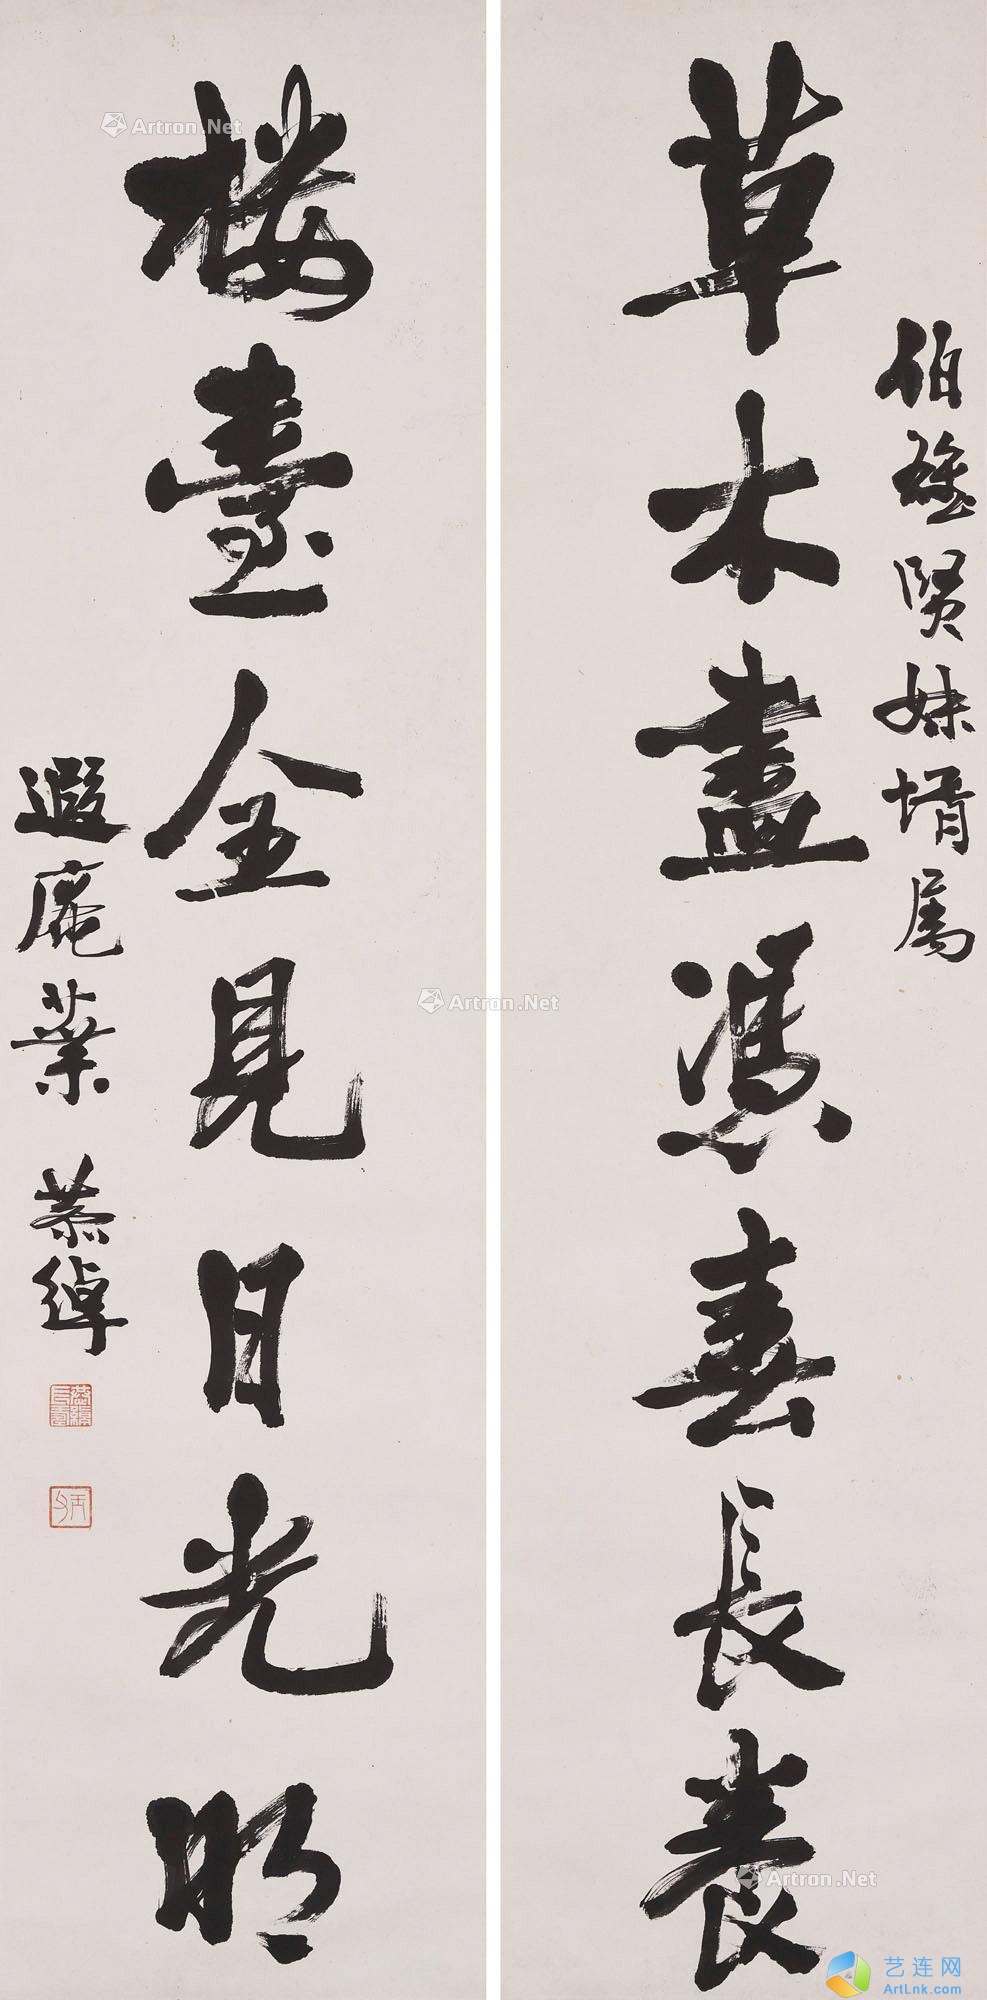 伯雄賢妹壻属
草木盡憑春長養
樓臺全見日光明
遐庵葉恭綽
Artron.Net
Artron.Net
Artron.Net
艺连网
ArtLnk.com